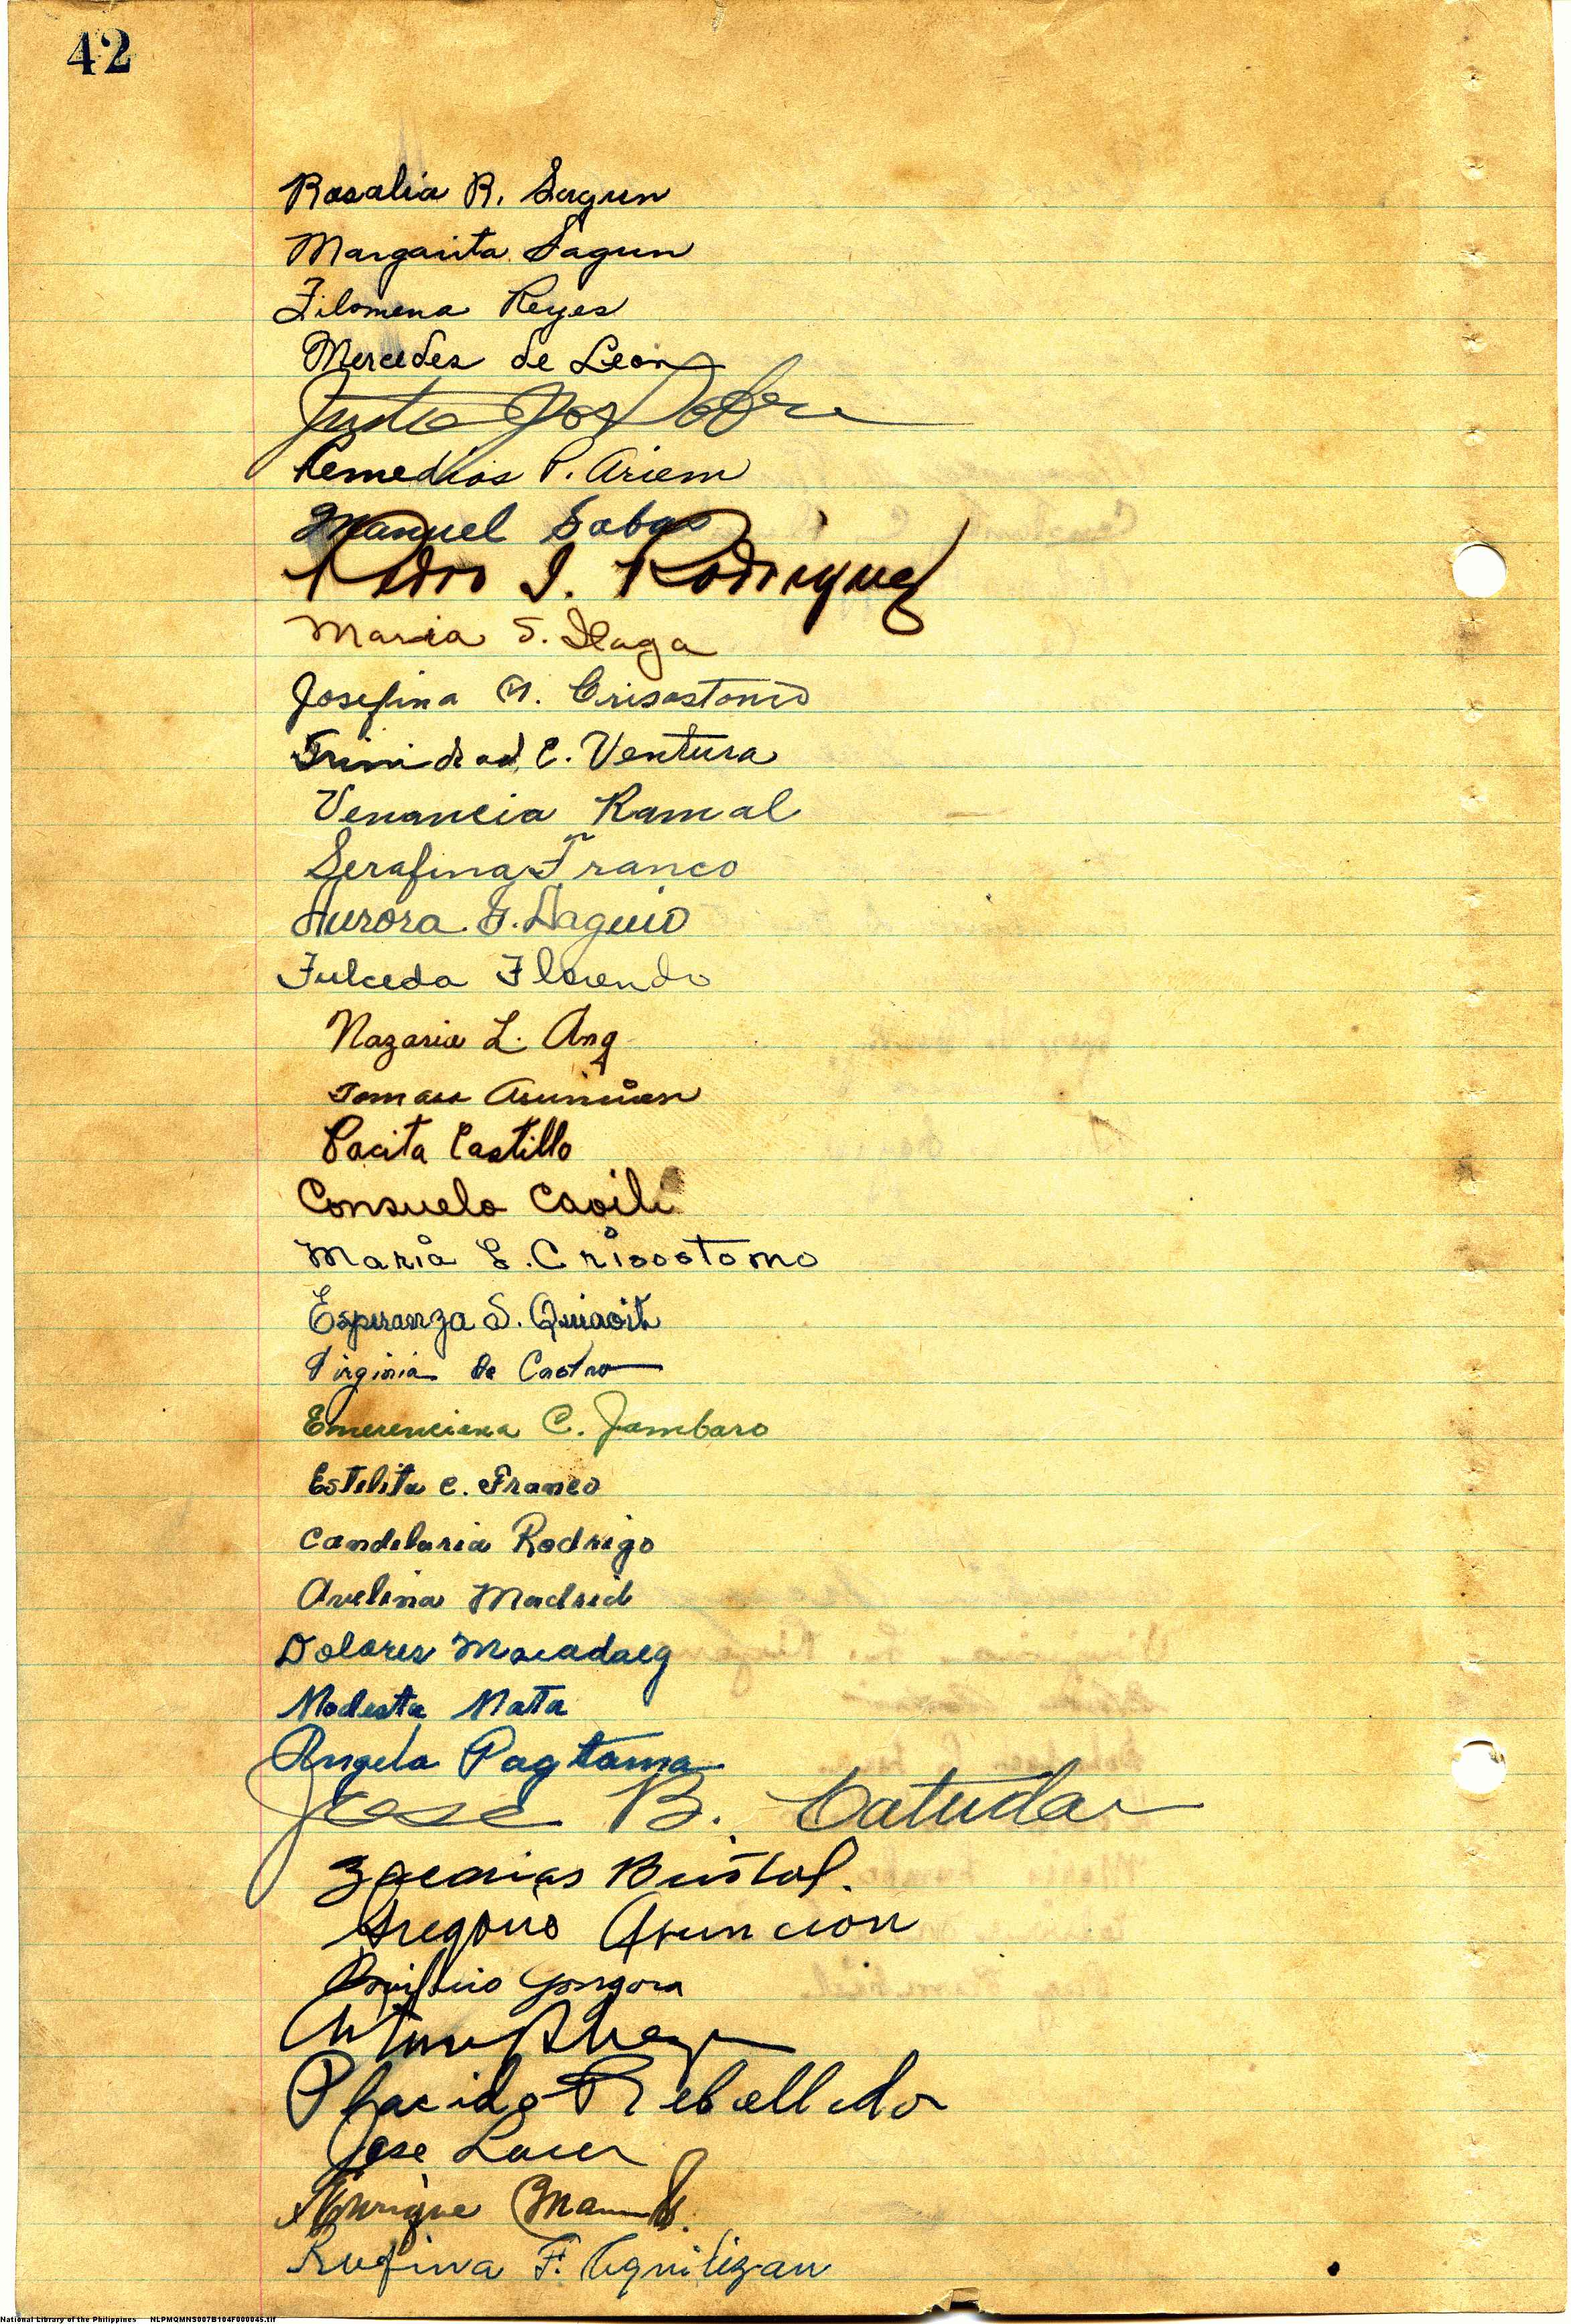 42
Rosalia R. Sagun
Margarita Sagun
Filomena Reyes
Mercedes de Leon
Justo
Remedios P. Ariem
Manuel Sabas
Pedro I. Rodriguez
Maria S. Ilaga
Josefina M. Crisostomo
Trinidad C. Ventura
Venancia Ramal
Serafina Franco
Aurora G. Daguio
Fulceda Florendo
Nazaria L. Ang
Tomasa Asuncion
Pacita Castillo
Consuelo Caoili
Maria L. Crisostomo
Esperanza S. Quiaoit
Virginia de Castro
Emerenciana C. Jambaro
Estelita C. Franco
Candelaria Rodrigo
Avelina Madrid
Dolores Macadaeg
Modesta Mata
Angela Pagtama
Jose B. Catudan
Zacarias Bustos.
Gregorio Asuncion
Bonifacio Gongora
Placido Rebolledo
Jose
Enrique
Rufina F. Aguilizan
National Library of the Philippines NLPMQMNS007B104F000045.tif